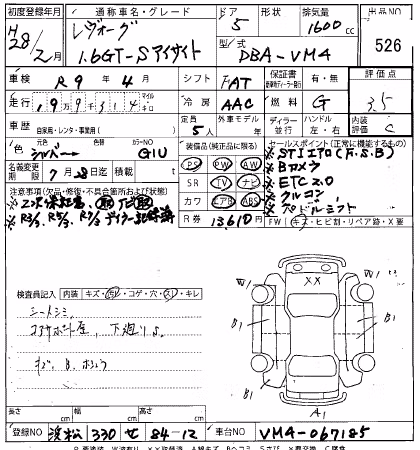 初度登録年月 通称車名・グレード ドア 形状 排気量 出品NO
H28/2月 レヴォーグ 1.6GT-Sアイサイト 5 1600cc 526
型式 DBA-VM4
車検 R9年4月 シフト FAT 保証書 有・無 評価点
走行 マイル キロ 冷房 AAC 燃料 G 3.5
車歴 自家用・レンタ・事業用( ) 定員 5人 外車モデル ディーラー 並行 ハンドル 左・右 内装 C
色 シルバー カラーNO G1U 装備品(純正品に限る) セールスポイント(正常に機能するもの)
名義変更期限 7月28日迄 積載 PS PW AW
※STIエアロ(F.S.B)
※Bカメラ
注意事項(欠品・修復・不具合箇所および状態) SR TV ナビ
※ETC2.0
※クルコン
カワ エアB ABS
※パドルシフト
※R3/3、R5/3、R7/3 ディーラー記録簿
R券 13610円 FW(キズ・ヒビ割・リペア跡・X要
検査員記入 内装 キズ・汚レ・コゲ・穴・スレ・キレ
シートシミ
下廻りサビ
キズ、B、
XX
W1 W1
B1 B1
A1
長さ cm 幅 cm 高さ cm
登録NO 浜松 330 せ 84-12 車台NO VM4-067185